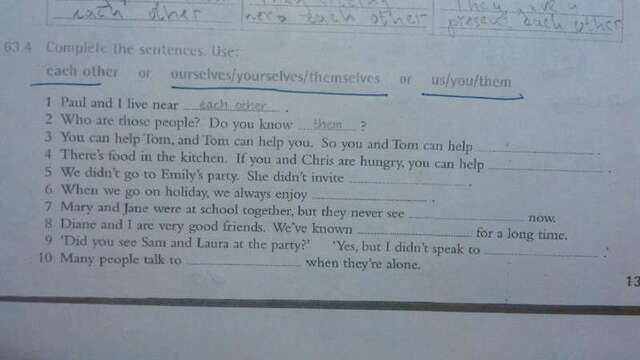 each other each other They
present each other
63.4 Complete the sentences. Use:
each other or ourselves/yourselves/themselves or us/you/them
1 Paul and I live near each other .
2 Who are those people? Do you know them ?
3 You can help Tom, and Tom can help you. So you and Tom can help .
4 There's food in the kitchen. If you and Chris are hungry, you can help .
5 We didn't go to Emily's party. She didn't invite .
6 When we go on holiday, we always enjoy .
7 Mary and Jane were at school together, but they never see now.
8 Diane and I are very good friends. We've known for a long time.
9 'Did you see Sam and Laura at the party?' 'Yes, but I didn't speak to .'
10 Many people talk to when they're alone.
13